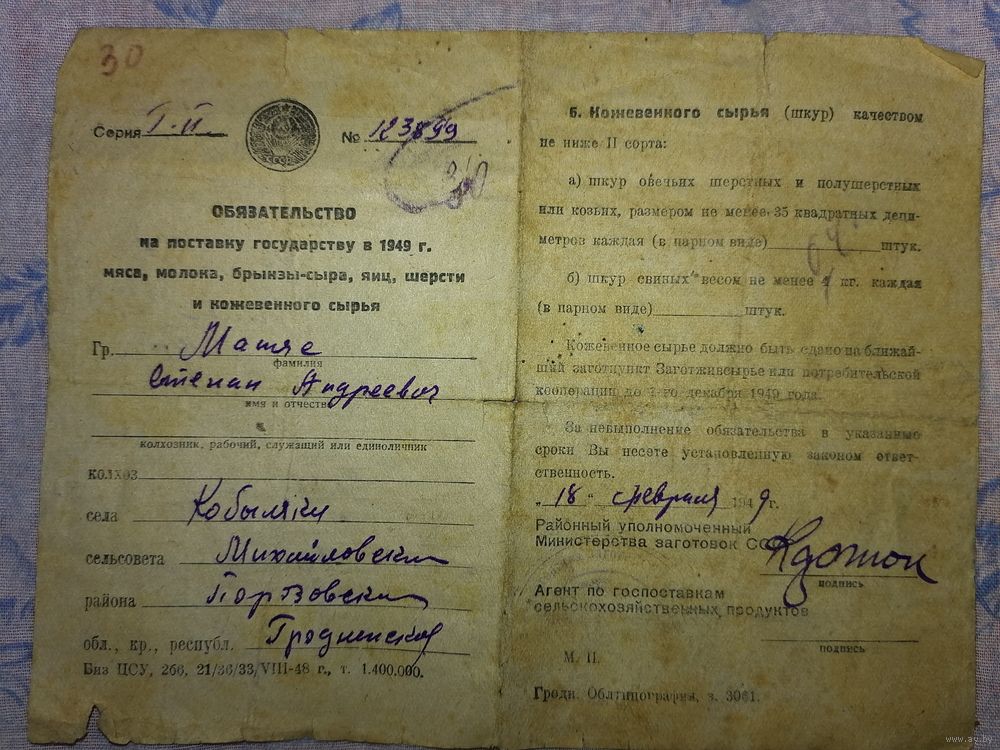 30
Серия Г-П
№ 123899
ОБЯЗАТЕЛЬСТВО
на поставку государству в 1949 г.
мяса, молока, брынзы-сыра, яиц, шерсти
и кожевенного сырья
Гр. Матяс
фамилия
Степан Андреевич
имя и отчество
колхозник, рабочий, служащий или единоличник
колхоз
села Кобыляки
сельсовета Михайловский
района
обл., кр., республ. Гродненской
Биз ЦСУ, 266, 21/36/33/VIII-48 г., т. 1.400.000.
6. Кожевенного сырья (шкур) качеством
не ниже II сорта:
а) шкур овечьих шерстных и полушерстных
или козьих, размером не менее 35 квадратных деци-
метров каждая (в парном виде) штук.
б) шкур свиных весом не менее 4 кг. каждая
(в парном виде) штук.
Кожевенное сырье должно быть сдано на ближай-
ший заготпункт Заготживсырье или потребительской
кооперации до 1-го декабря 1949 года.
За невыполнение обязательства в указанные
сроки Вы несете установленную законом ответ-
ственность.
„18" февраля 1949 г.
Районный уполномоченный
Министерства заготовок СССР
подпись
Агент по госпоставкам
сельскохозяйственных продуктов
подпись
М. П.
Гродн. Облтипография, з. 3061.
www.ay.by